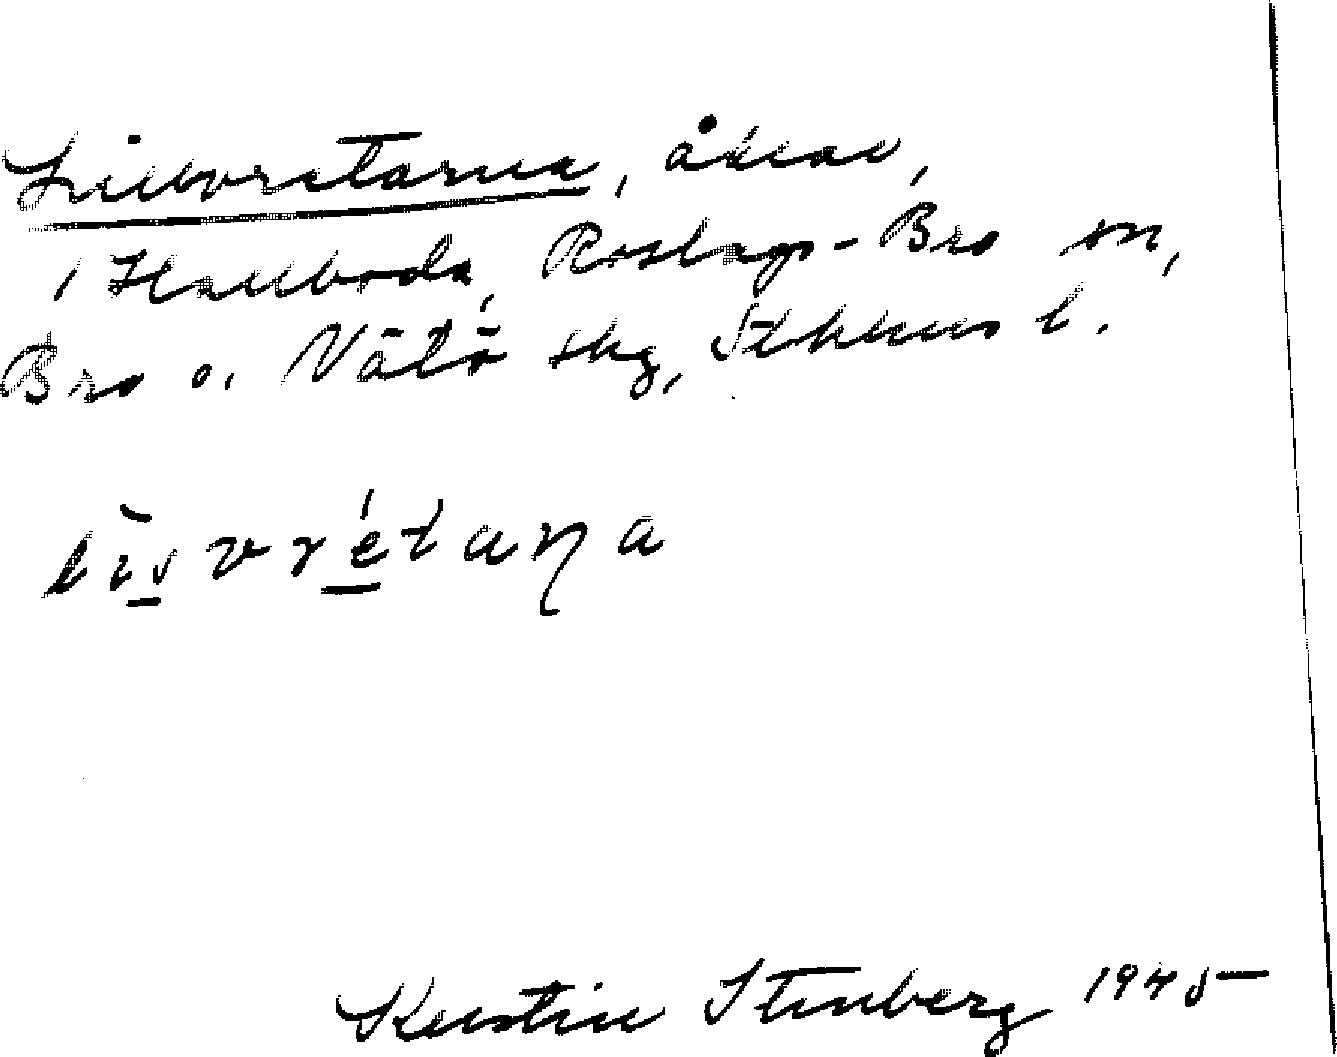 Lillvretarna, åkrar,
i Hallboda, Roslags-Bro sn,
Bro o. Vätö skg, Sthlms l.
Kerstin Stenberg 1945